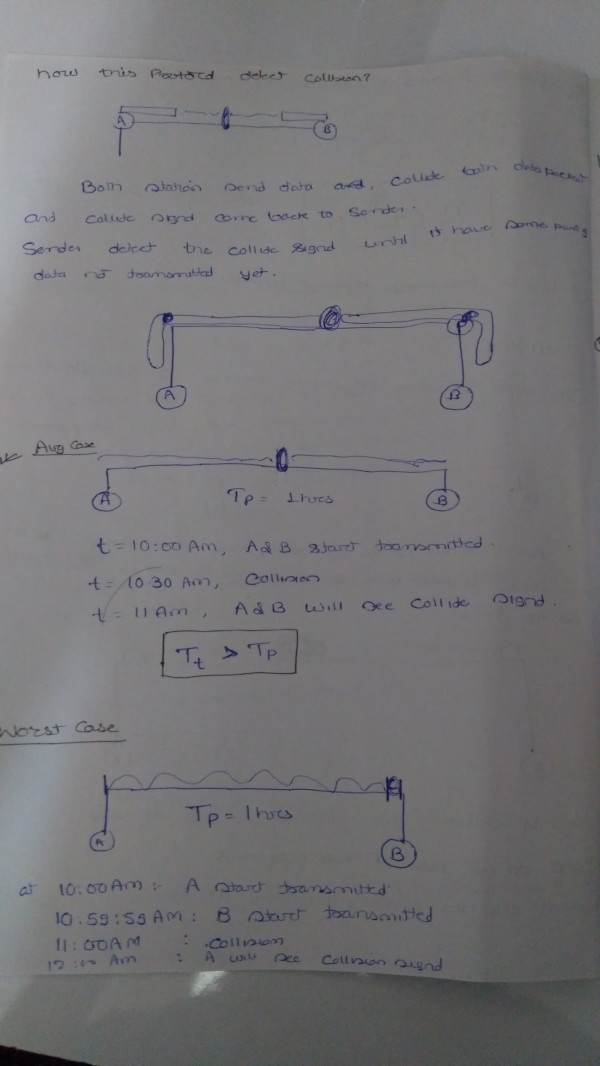 how this Protocol detect Collision?
A B
Both station send data and, Collide both data packet
and collide signal come back to Sender.
Sender detect the collide signal until it have some
data not transmitted yet.
A B
Avg Case
A Tp = 1 hrs B
t = 10:00 Am, A & B start transmitted.
t = 10 30 Am, Collision
t = 11 Am, A & B will see Collide signal.
Tt > Tp
Worst Case
Tp = 1 hrs
A B
at 10:00 Am : A start transmitted
10:59:59 AM : B start transmitted
11:00AM : Collision
12:00 Am : A will see Collision signal